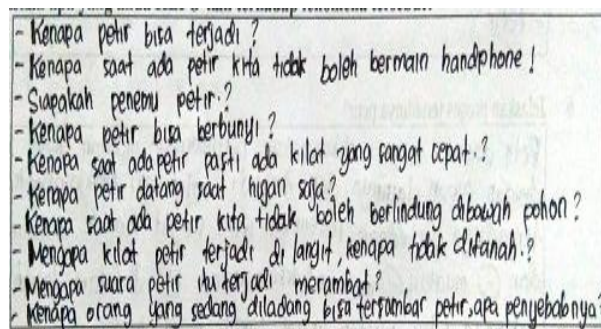 - Kenapa petir bisa terjadi ?
- Kenapa saat ada petir kita tidak boleh bermain handphone !
- Siapakah penemu petir ?
- Kenapa petir bisa berbunyi ?
- Kenapa saat ada petir pasti ada kilat yang sangat cepat ?
- Kenapa petir datang saat hujan saja ?
- Kenapa saat ada petir kita tidak boleh berlindung dibawah pohon ?
- Mengapa kilat petir terjadi di langit, kenapa tidak ditanah ?
- Mengapa suara petir itu terjadi merambat ?
- Kenapa orang yang sedang diladang bisa tersambar petir, apa penyebabnya ?